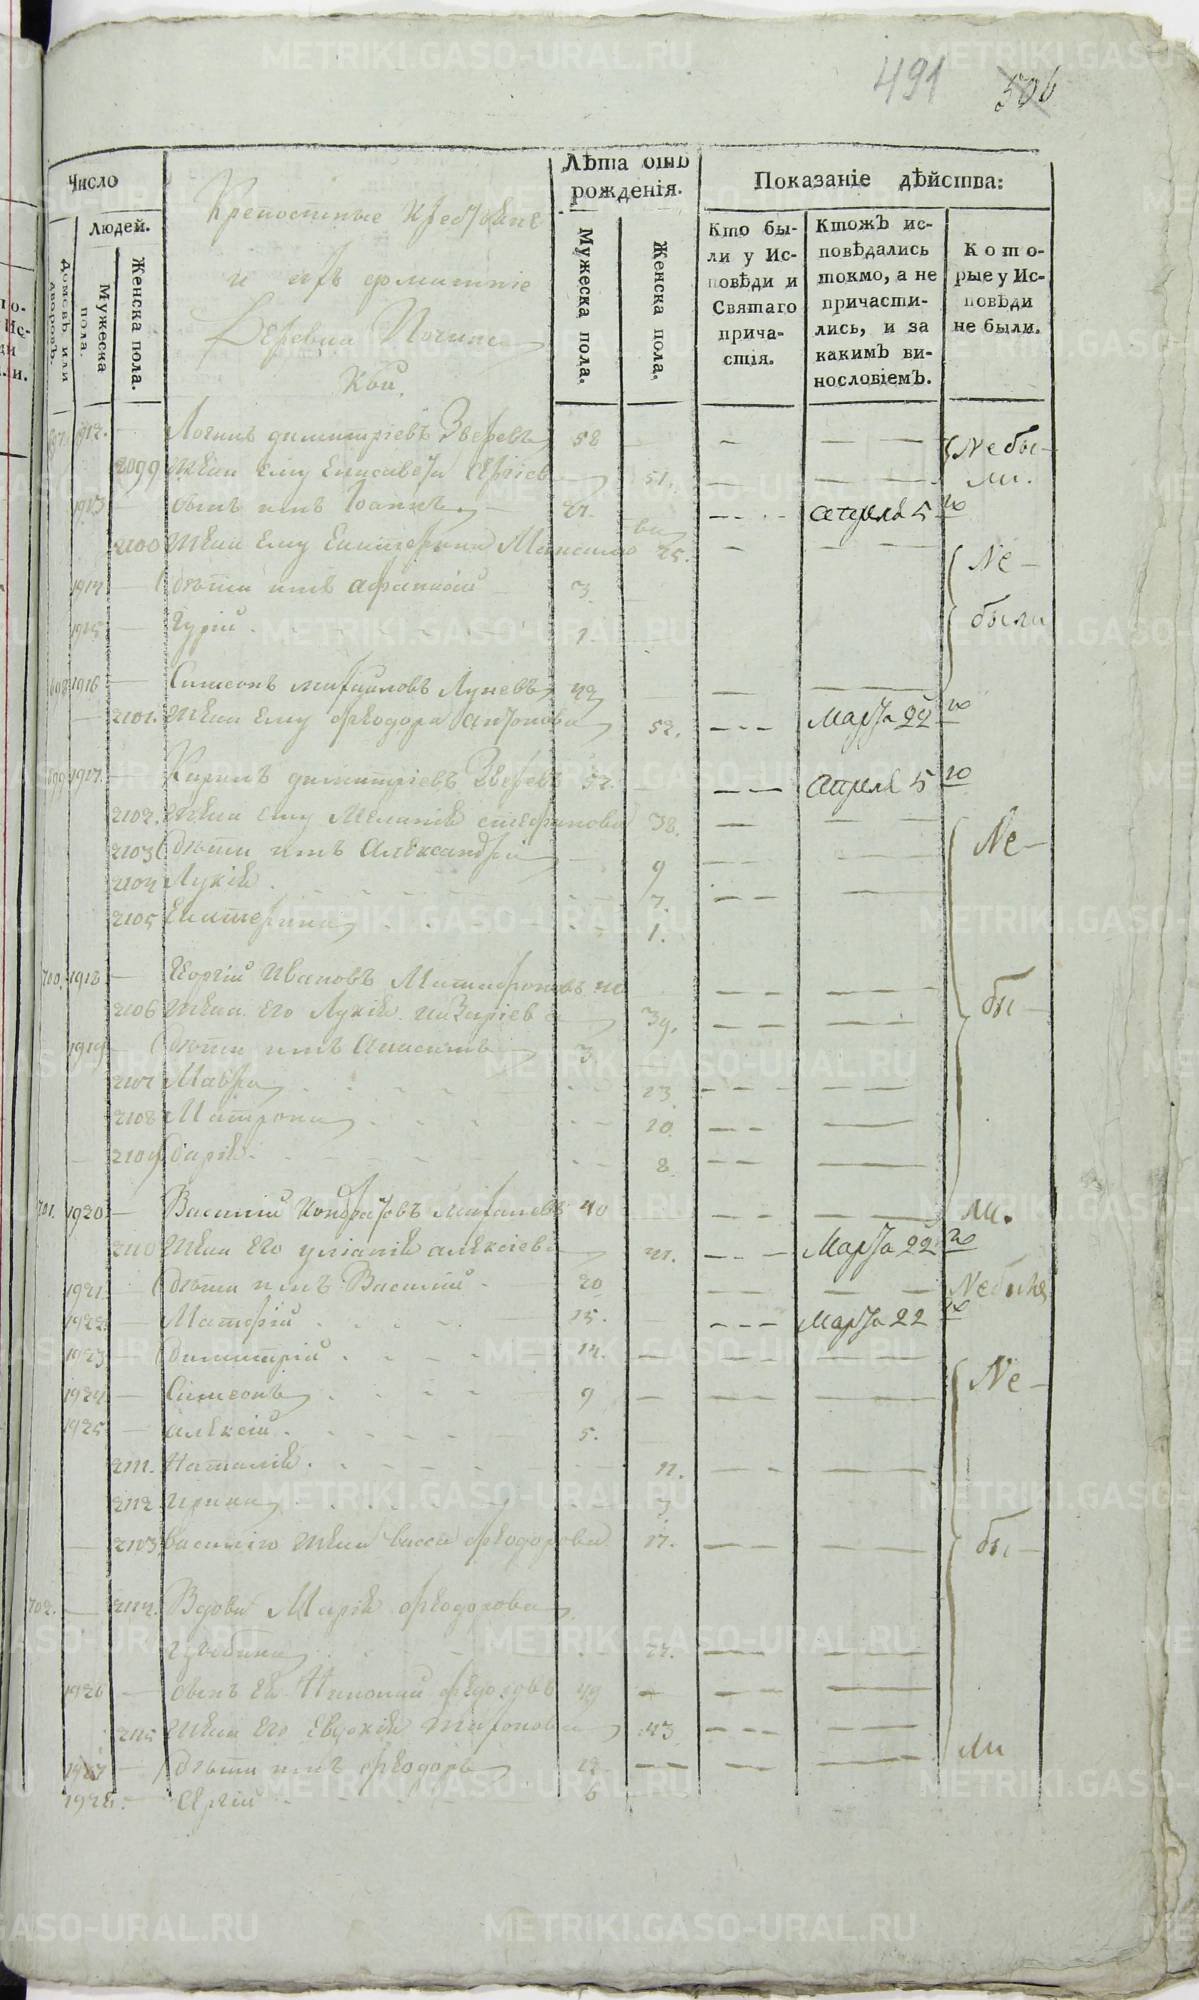 491 506
Число
Людей.
Домовъ или дворовъ.
Мужеска пола.
Женска пола.
Крепостные Крестьяне
и ихъ
Деревни
кои
Лѣта отъ рожденія.
Мужеска пола.
Женска пола.
Показаніе дѣйства:
Кто бы-
ли у Ис-
повѣди и
Святаго
прича-
стія.
Ктожъ ис-
повѣдались
токмо, а не
причасти-
лись, и за
какимъ ви-
нословіемъ.
Кото-
рые у Ис-
повѣди
не были.
1912. Логинъ димитріевъ Зверевъ 58 Не бы-
2099 Жена ему Елисавета Сергіева 51. ли.
1913 сынъ ихъ Іоаннъ 27. Апреля 5 го
2100 Жена ему Екатерина 25. Не-
1914 Дѣти ихъ Афанасій 3
1915 Гурій 1 были
698 1916 Симеонъ михайловъ Луневъ 49
2101. Жена ему Ѳеодора Антонова 52. Марта 22 го
699 1917 Кирилъ димитріевъ Зверевъ 52. Апреля 5 го
2102. Жена ему Меланія стефанова 38.
2103 Дѣти ихъ Александра 9 Не-
2104 Лукія 7
2105 Екатерина 1.
700. 1918 Георгій Ивановъ Митрофановъ 40
2106 Жена его Лукія Назаріева 39. бы-
1919 Дѣти ихъ Анисимъ 3
2107 Мавра 13
2108 Матрона 10
2109 Дарія 8
701. 1920 Василій Кондратовъ 40 ли.
2110 Жена его Уліанія алексіева 41. Марта 22 го
1921 Дѣти ихъ Василій 20 Не были
1922 Матѳій 15. Марта 22 го
1923 Димитрій 12.
1924 Симеонъ 9 Не-
1925 алексій 5.
2111. Наталія 11.
2112 Ирина 3
2113 Василію Жена Васса Ѳеодорова 17. бы-
702. 2114. Вдова Марія Ѳеодорова
72.
1926 сынъ ея Ѳеодоръ 49
2115 Жена его Евдокія миронова 43
1927 Дѣти ихъ Ѳеодоръ 12 ли
1928 Сергій 6
METRIKI.GASO-URAL.RU